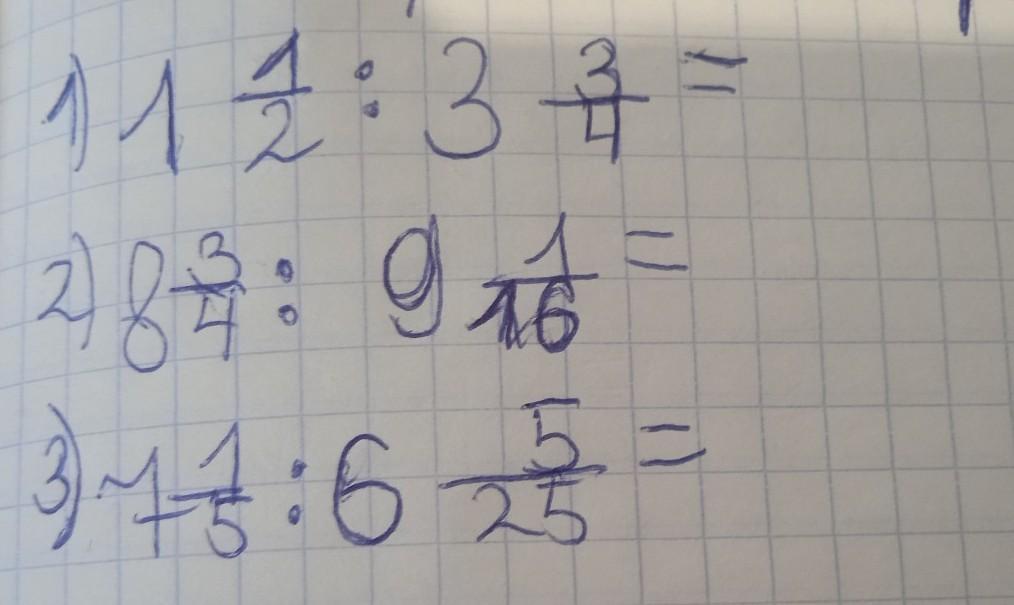 1) 1 1/2 : 3 3/4 =
2) 8 3/4 : 9 1/16 =
3) 7 1/5 : 6 5/25 =